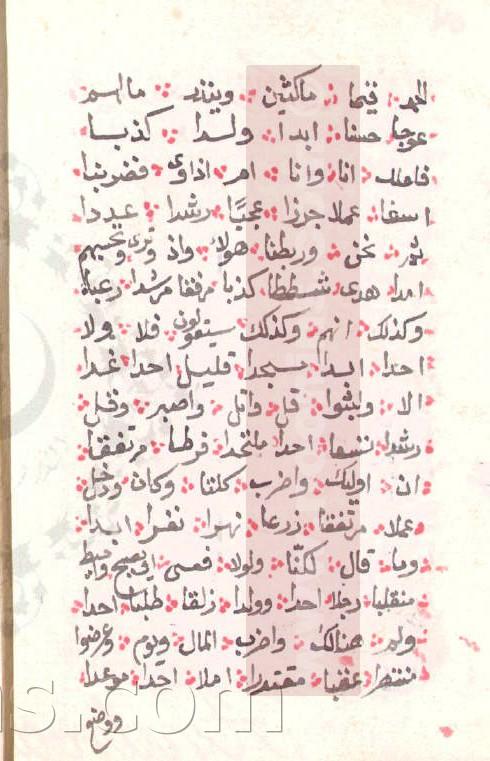 الحمد فيما ماكثين وينذر مالهم
عوجا حسنا ابدا ولدا كذبا
فلعلك انا وانا ام اذ اوى فضربنا
اسفا عملا جرزا عجبا رشدا عددا
ثم نحن وربطنا هولاء واذ وترى وتحسبهم
امدا هدى شططا كذبا مرفقا مرشدا رعبا
وكذلك انهم وكذلك سيقولون فلا ولا
احدا ابدا مسجدا قليل احدا غدا
الا ولبثوا قل واتل واصبر وقل
رشدا تسعا احدا ملتحدا فرطا مرتفقا
ان اوليك واضرب كلتا وكان ودخل
عملا مرتفقا زرعا نهرا نفرا ابدا
وما قال لكنا ولولا فعسى او يصبح واحيط
منقلبا رجلا احدا وولدا زلقا طلبا احدا
ولم هنالك واضرب المال ويوم وعرضوا
منتصرا عقبا مقتدرا املا احدا موعدا
ووضع
ns.com